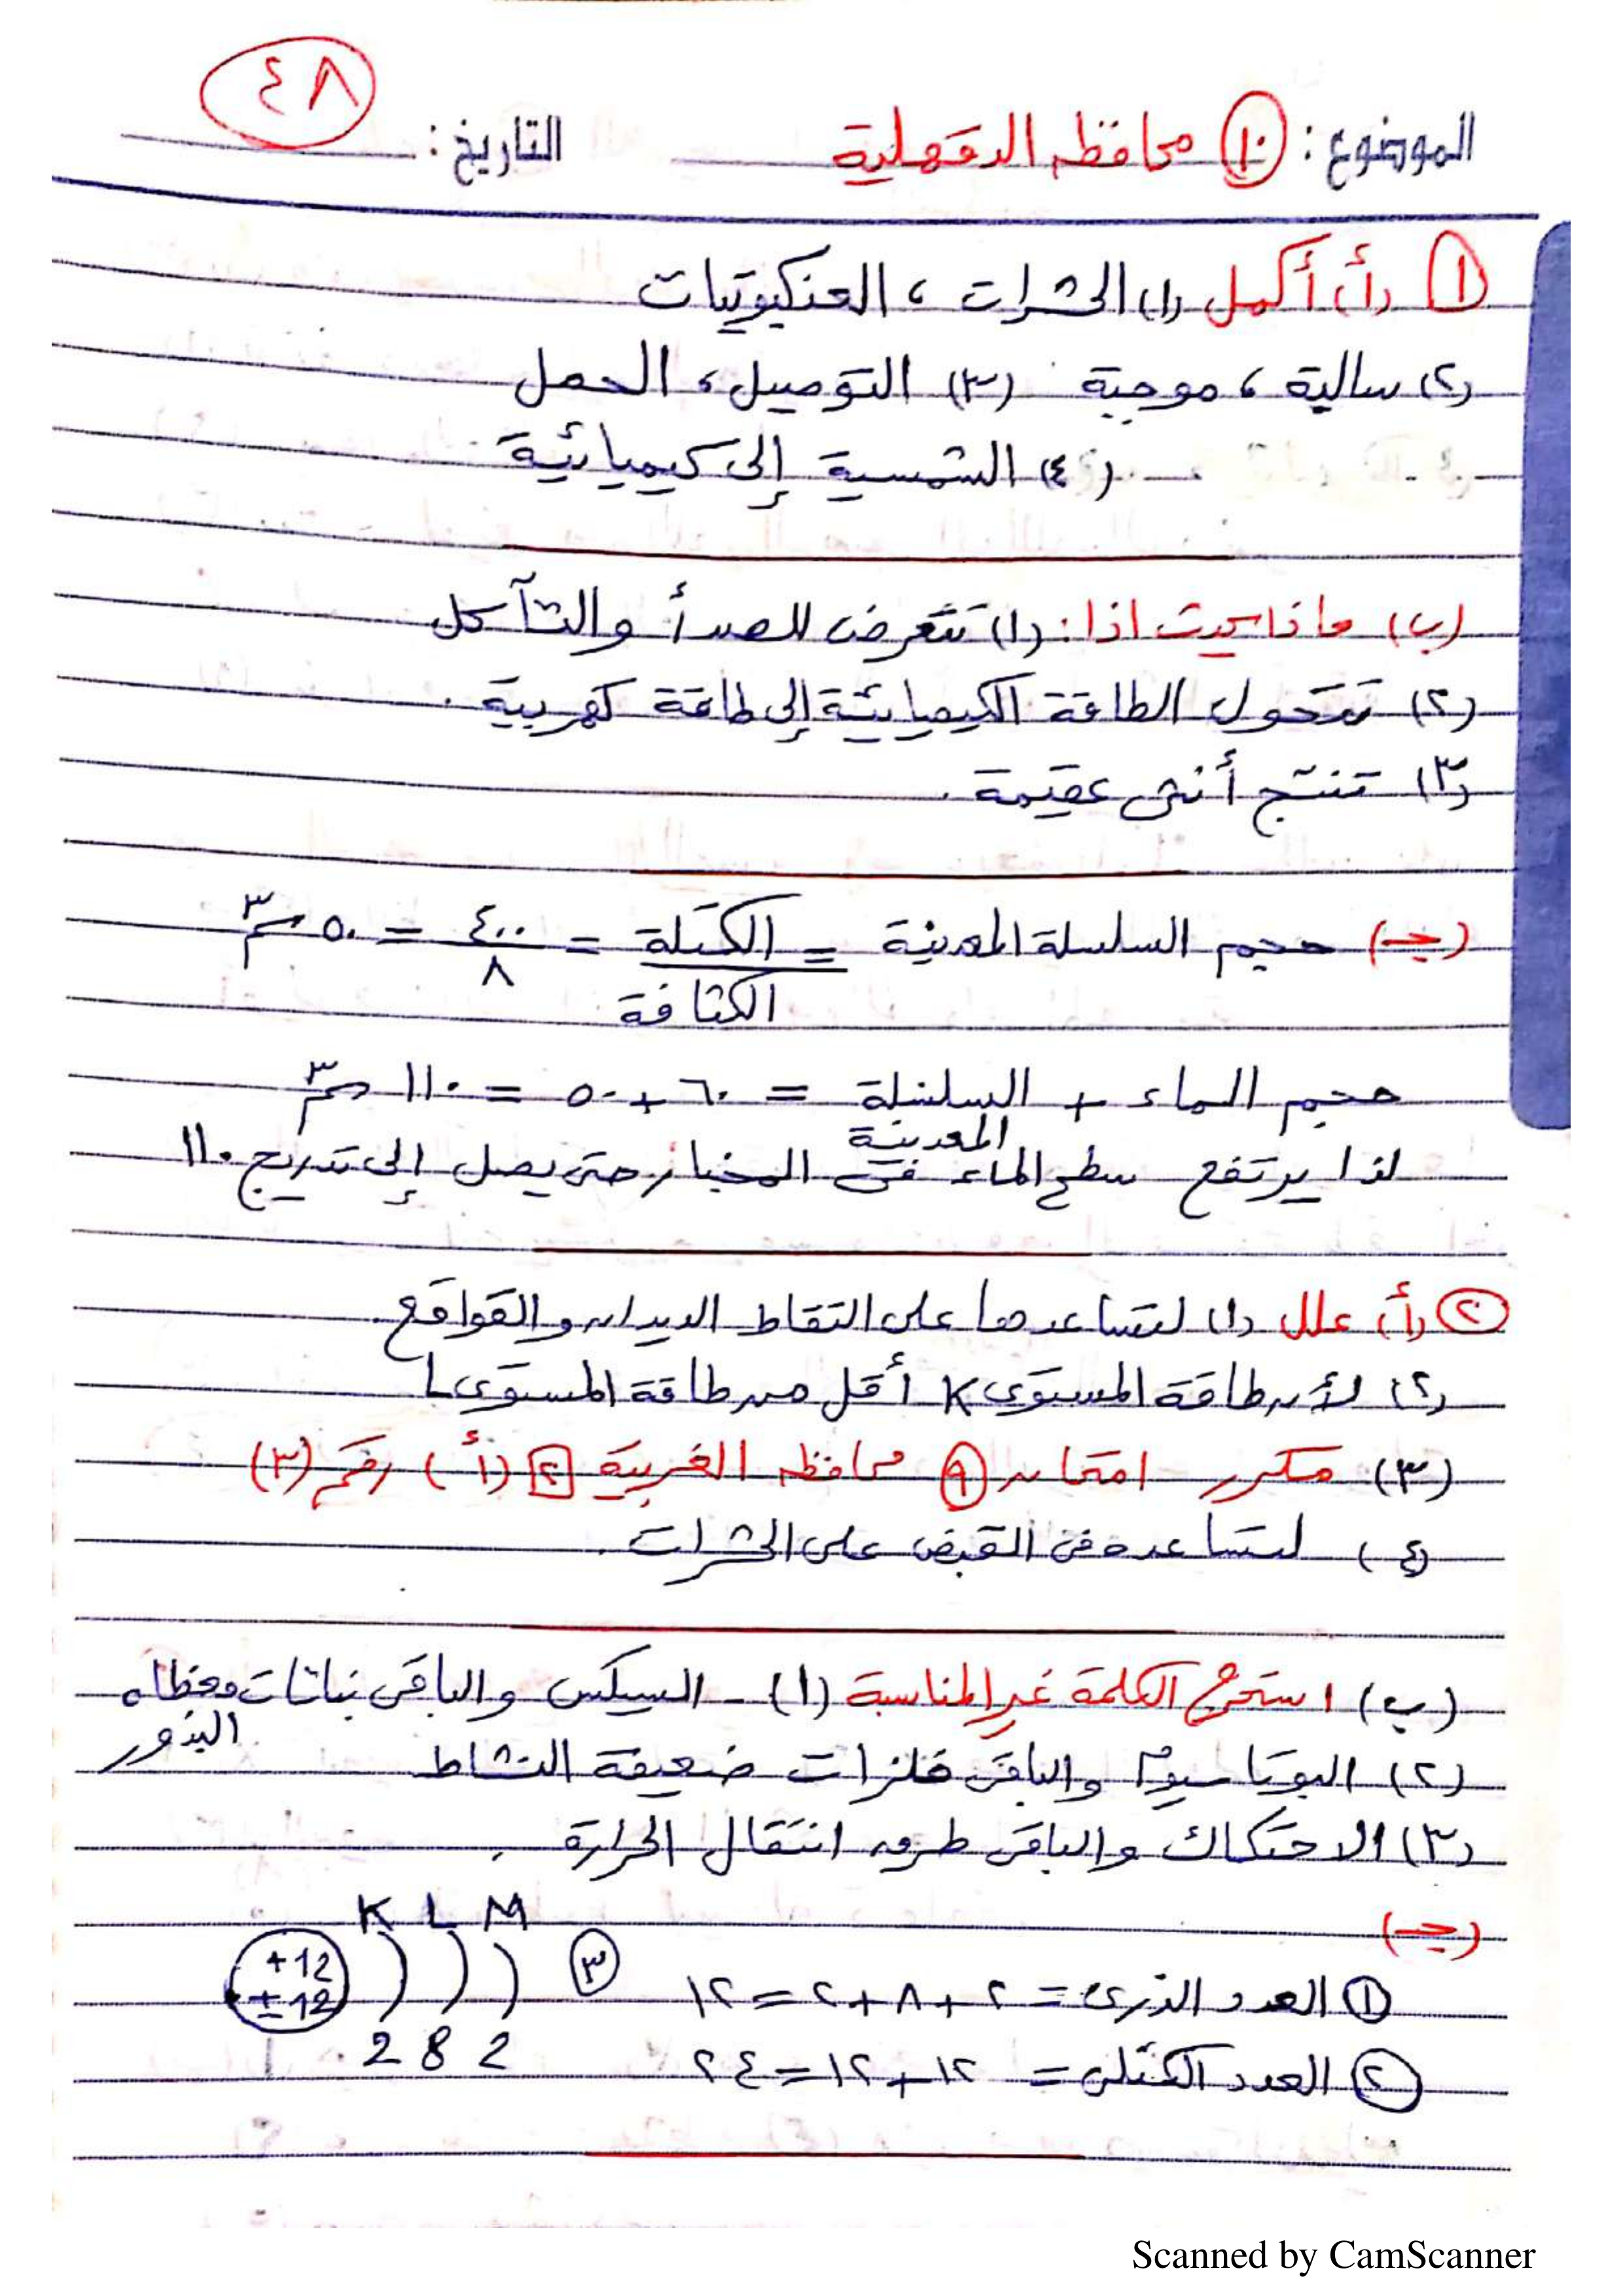 ٤٨
الموضوع: ١٠ محافظه الدقهلية التاريخ:
١ (أ) أكمل (١) الحشرات ، العنكبوتيات
(٢) سالبة ، موجبة (٣) التوصيل ، الحمل
(٤) الشمسية إلى كيميائية
(ب) ماذا يحدث اذا: (١) تتعرض للصدأ والتآكل
(٢) تتحول الطاقة الكيميائية إلى طاقة كهربية.
(٣) تنتج أنثى عقيمة.
(جـ) حجم السلسلة المعدنية = الكتلة = ٤٠٠ = ٥٠ سم٣
الكثافة ٨
حجم الماء + السلسلة = ٦٠ + ٥٠ = ١١٠ سم٣
المعدنية
لذا يرتفع سطح الماء فى المخبار حتى يصل إلى تدريج ١١٠
٢ (أ) علل (١) لتساعدها على التقاط الديدان والقواقع.
(٢) لأن طاقة المستوى K أقل من طاقة المستوى L
(٣) مكرر - امتحان ٩ محافظه الغربية ٢ (أ) رقم (٣)
(٤) لتساعده فى القبض على الحشرات.
(ب) استخرج الكلمة غير المناسبة (١) - السيكس والباقى نباتات مغطاه
البذور
(٢) البوتاسيوم والباقى فلزات ضعيفة النشاط
(٣) الاحتكاك والباقى طرق انتقال الحرارة.
(جـ)
١ العدد الذرى = ٢ + ٨ + ٢ = ١٢
٢ العدد الكتلى = ١٢ + ١٢ = ٢٤
٣ K L M
+12
± 12
2 8 2
Scanned by CamScanner